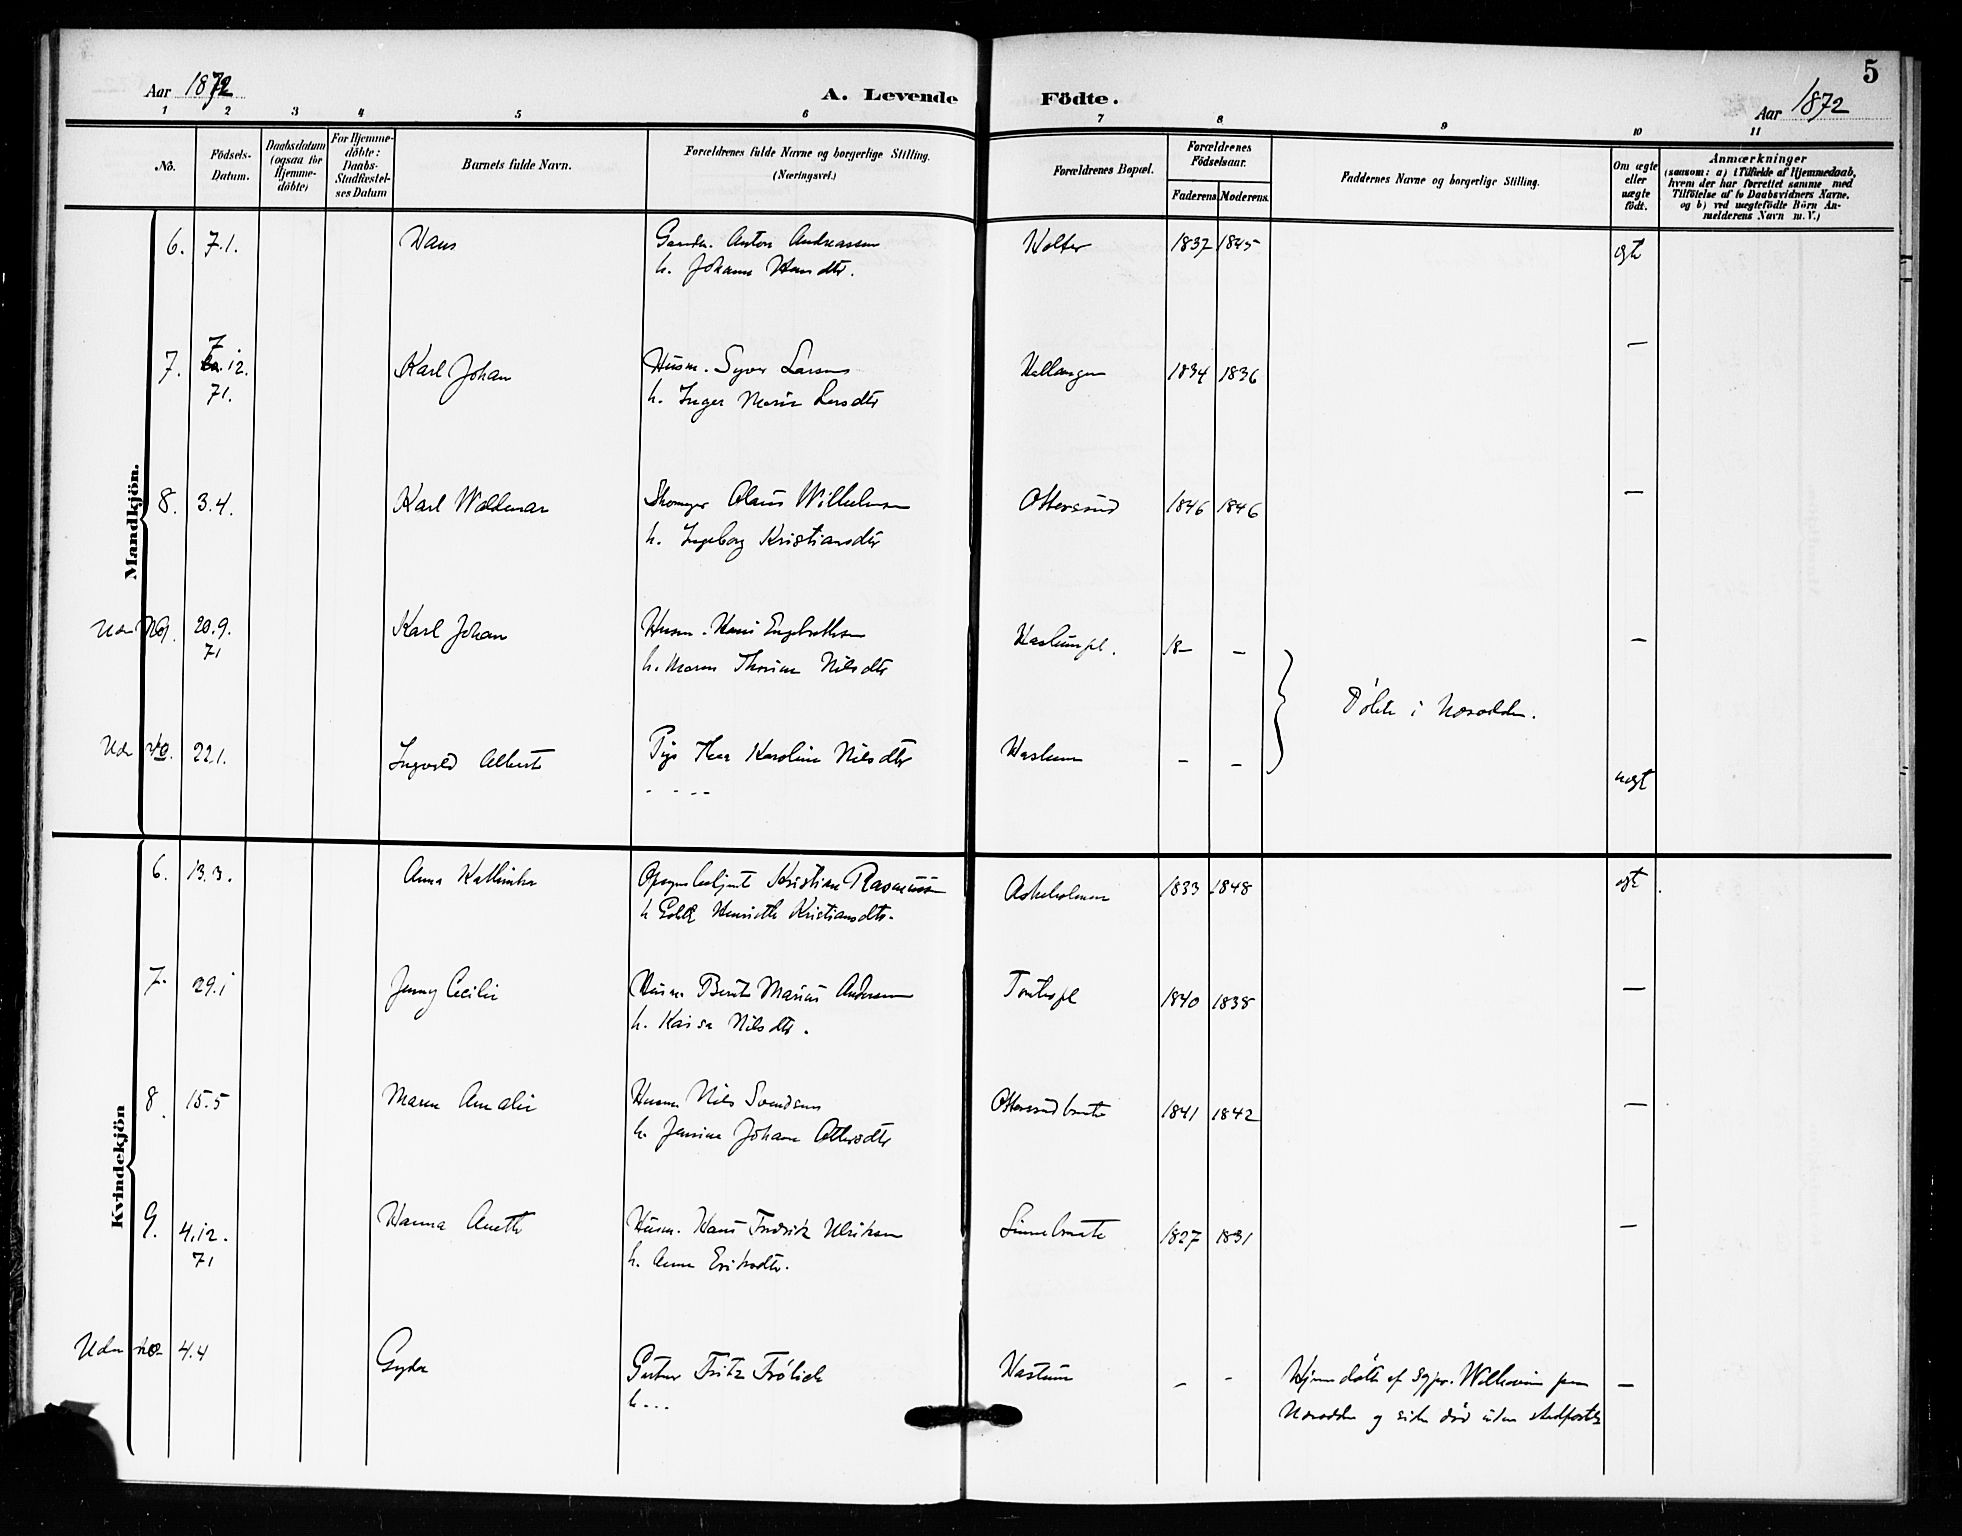 5
Aar 1872
A. Levende Födte.
Aar 1872
1 2 3 4 5 6 7 8 9 10 11
No.
Födsels-Datum.
Daabsdatum (ogsaa for Hjemme-döbte)
For Hjemme-döbte: Daabs-Stadfæstel-ses Datum
Barnets fulde Navn.
Forældrenes fulde Navne og borgerlige Stilling. (Næringsvei.)
Forældrenes Bopæl.
Forældrenes Födselsaar.
Faderens Moderens.
Faddernes Navne og borgerlige Stilling.
Om ægte eller uægte födt.
Anmærkninger
(saasom: a) i Tilfælde af Hjemmedaab, hvem der har forrettet samme med Tilföielse af to Daabsvidners Navne. og b) ved uægtefödte Börn An-melderens Navn m. V.)
Mandkjön.
6. 7.1. Hans Gaardm. Anton Andreassen Holter 1837 1845 egte
h. Johanne Hansdtr.
7. 7.12. Karl Johan Husm. Syver Larsen Hallangen 1834 1836 —
71. h. Inger Marie Larsdtr
8. 3.4. Karl Waldemar Skomager Olaus Wilhelmsen Ottersund 1846 1846 —
h. Ingeborg Kristiansdtr
Uden No. 20.9. Karl Johan Husm. Hans Engebrethsen Haslumpl. 18— — —
71 h. Maren Thorine Nilsdtr
Døbte i Næsodden.
Uden No. 22.1. Ingvald Albert Pige Thea Karoline Nilsdtr Haslum — — uegte
- - - -
Kvindekjön
6. 13.3. Anna Kathinka Opsynsbetjent Kristian Rasmussen Askeholmen 1833 1848 egte
h. Henriette Kristiansdtr.
7. 29.1 Jenny Cecilie Husm. Bernt Marius Andersen Toftepl 1840 1838 —
h. Kaisa Nilsdtr.
8. 15.5 Maren Amalie Husm Nils Svendsen Ottersundbraate 1841 1842 —
h. Jensine Johanne Ottersdtr
9. 4.12. Hanna Anette Husm. Hans Fredrik Ulriksen 1827 1831 —
71 h. Anne Eriksdtr.
Uden No 4.4 Gyda Fritz Frölich Haslum — - Hjemmedøbt af Sgpr. fra —
h - - - Næsodden og siden død uden stadfæstelse